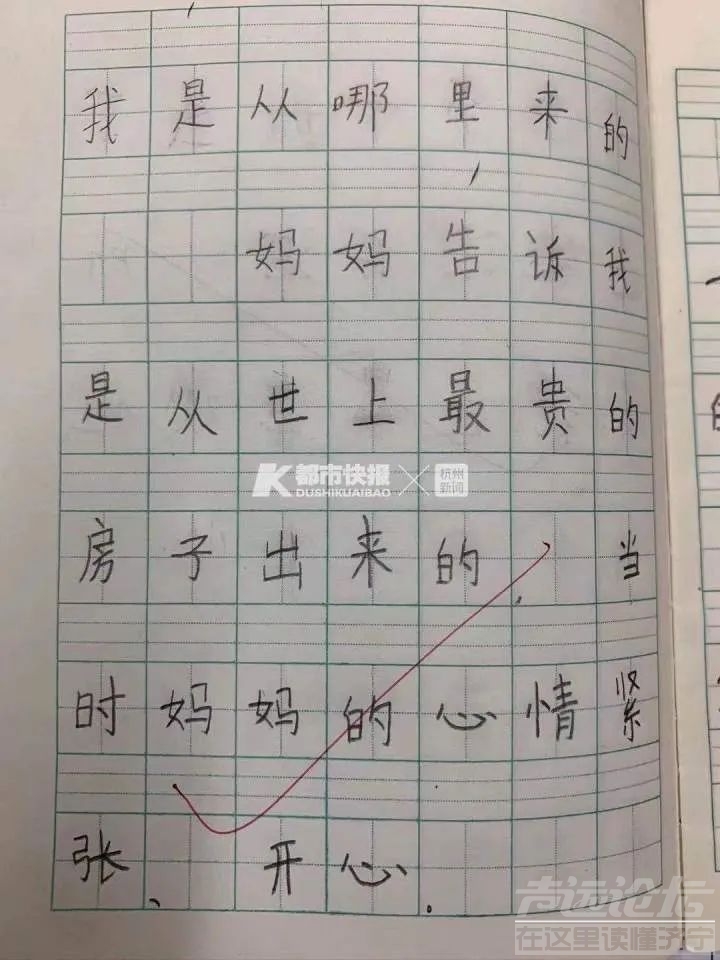 我是从哪里来的
妈妈告诉我
是从世上最贵的
K 都市快报 × 杭州新闻
DUSHIKUAIBAO
房子出来的，当
时妈妈的心情紧
张、开心.
志远论坛
在这里读懂济宁